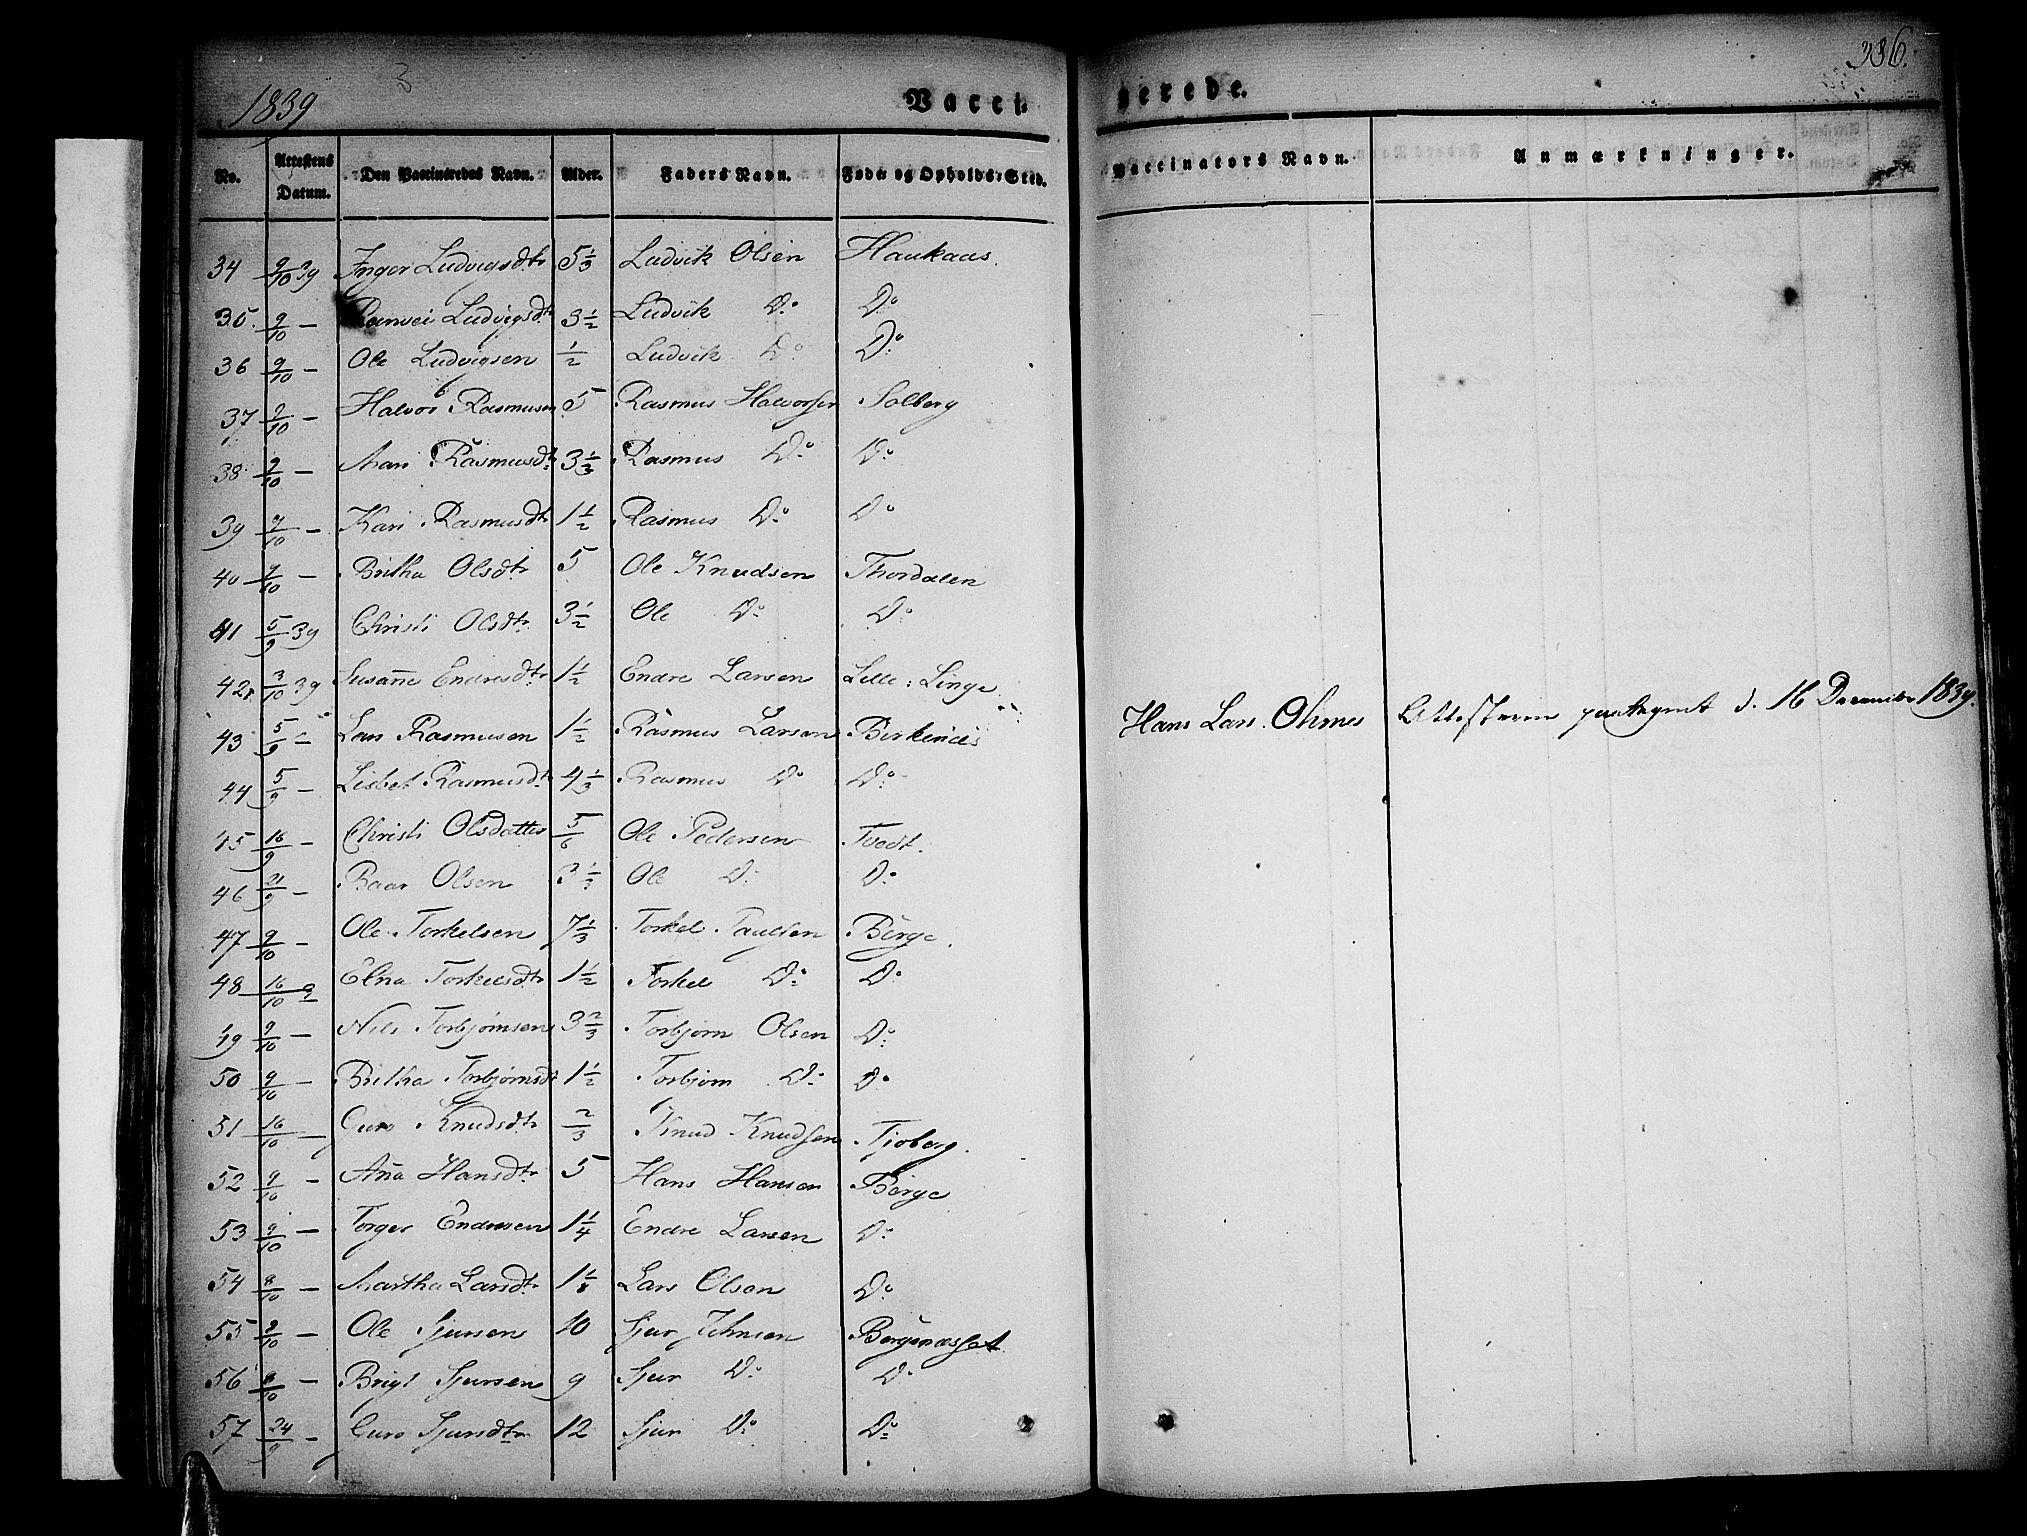 1839 3 Vacci nerede. 386.
No. Attestens Datum. Den Vaccineredes Navn. Alder. Faders Navn. Føde og Opholds-Sted. Vaccinators Navn. Anmærkninger.
34 9/10 39 Inger Ludvigsdtr 5 1/3 Ludvik Olsen Haukaas.
35 9/10 — Ranvei Ludvigsdt. 3 1/2 Ludvik Do Do
36 9/10 — Ole Ludvigsen 1/2 Ludvik Do Do
37 9/10 — Halvor Rasmusen 5 Rasmus Halvorsen Solberg
38 9/10 — Mari Rasmusdt. 3 1/3 Rasmus Do Do
39 9/10 — Kari Rasmusdtr 1 1/2 Rasmus Do Do
40 9/10 — Britha Olsdtr 5 Ole Knudsen Thordalen
41 5/9 39 Christi Olsdtr 3 1/2 Ole Do Do
42 3/10 39 Susanne Endresdtr 1 1/2 Endre Larsen Lille: Linge
43 5/9 — Lars Rasmusen 1 1/2 Rasmus Larsen Birkenæs Hans Lars. Ohmes Attesterne 16 December 1839.
44 5/9 — Lisbet Rasmusdt. 4 1/3 Rasmus Do Do
45 16/9 — Christi Olsdatter 5/6 Ole Pedersen Tvedt.
46 21/9 — Baar Olsen 3 1/3 Ole Do Do
47 9/10 — Ole Torkelsen 7 1/3 Torkel Paulsen Berge.
48 16/10 Elna Torkelsdtr 1 1/2 Torkel Do Do
49 9/10 — Nils Torbjørnsen 3 2/3 Torbjørn Olsen Do
50 9/10 — Britha Torbjørnsdt 1 1/2 Torbjørn Do Do
51 16/10 — Guro Knudsdtr 2/3 Knud Knudsen Tjoberg.
52 9/10 — Anna Hansdtr 5 Hans Hansen Berge
53 9/10 — Torger Endresen 1 1/4 Endre Larsen Do
54 8/10 — Martha Larsdtr 1 1/8 Lars Olsen Do
55 9/10 — Ole Sjursen 10 Sjur Johnsen Bergenæsset
56 8/10 — Brigt Sjursen 9 Sjur Do Do
57 24/9 — Guro Sjursdtr 12 Sjur Do Do